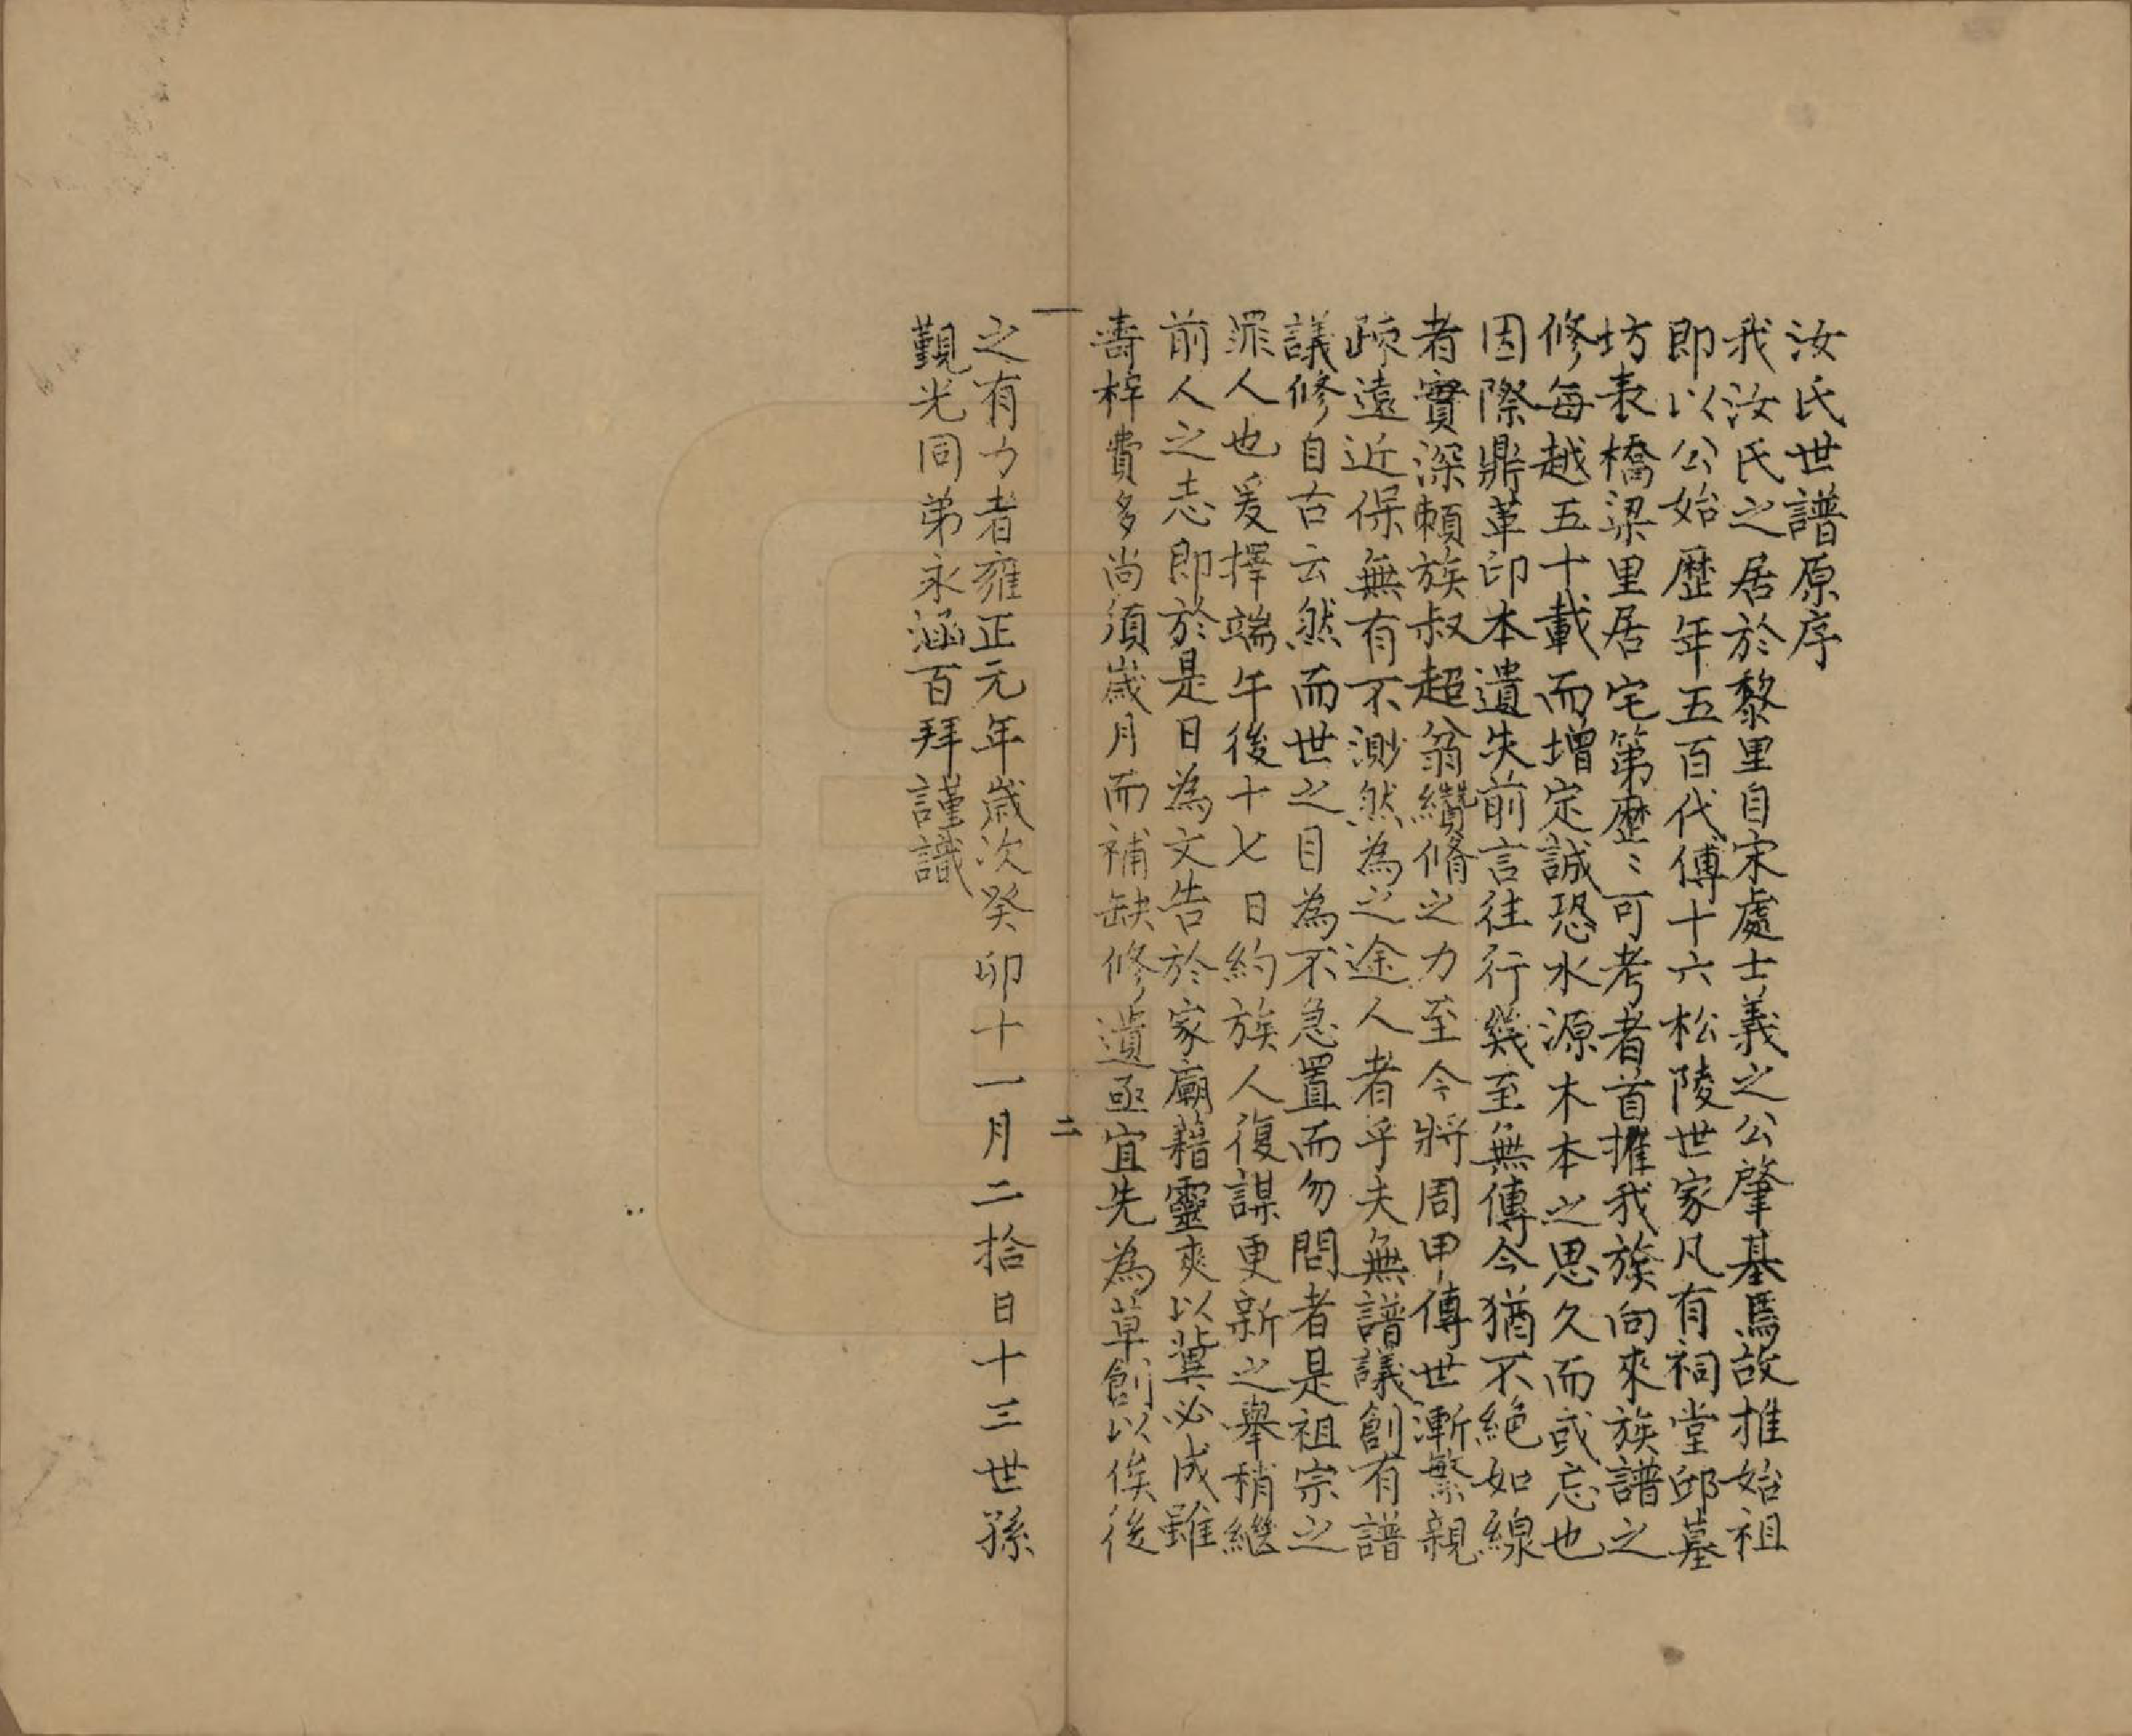 汝氏世譜原序
我汝氏之居於黎里自宋處士義之公肇基焉故推始祖
即以公始歷年五百代傅十六松陵世家凡有祠堂邱墓
坊表橋梁里居宅第歷〻可考者首推我族向來族譜之
修每越五十載而增定誠恐水源木本之思久而或忘也
因際鼎革印本遺失前言往行幾至無傳今猶不絕如線
者實深賴族叔超翁纘脩之力至今將周甲傳世漸繁親
疎遠近保無有不測然為之途人者乎夫無譜議創有譜
議修自古云然而世之目為不急置而勿問者是祖宗之
罪人也爰擇端午後十七日約族人復謀更新之舉稍繼
前人之志即於是日為文告於家廟藉靈爽以冀必成雖
壽梓費多尚須歲月而補缺修遺亟宜先為草創以俟後
一 二
之有力者雍正元年歲次癸卯十一月二拾日十三世孫
觀光同弟永涵百拜謹識